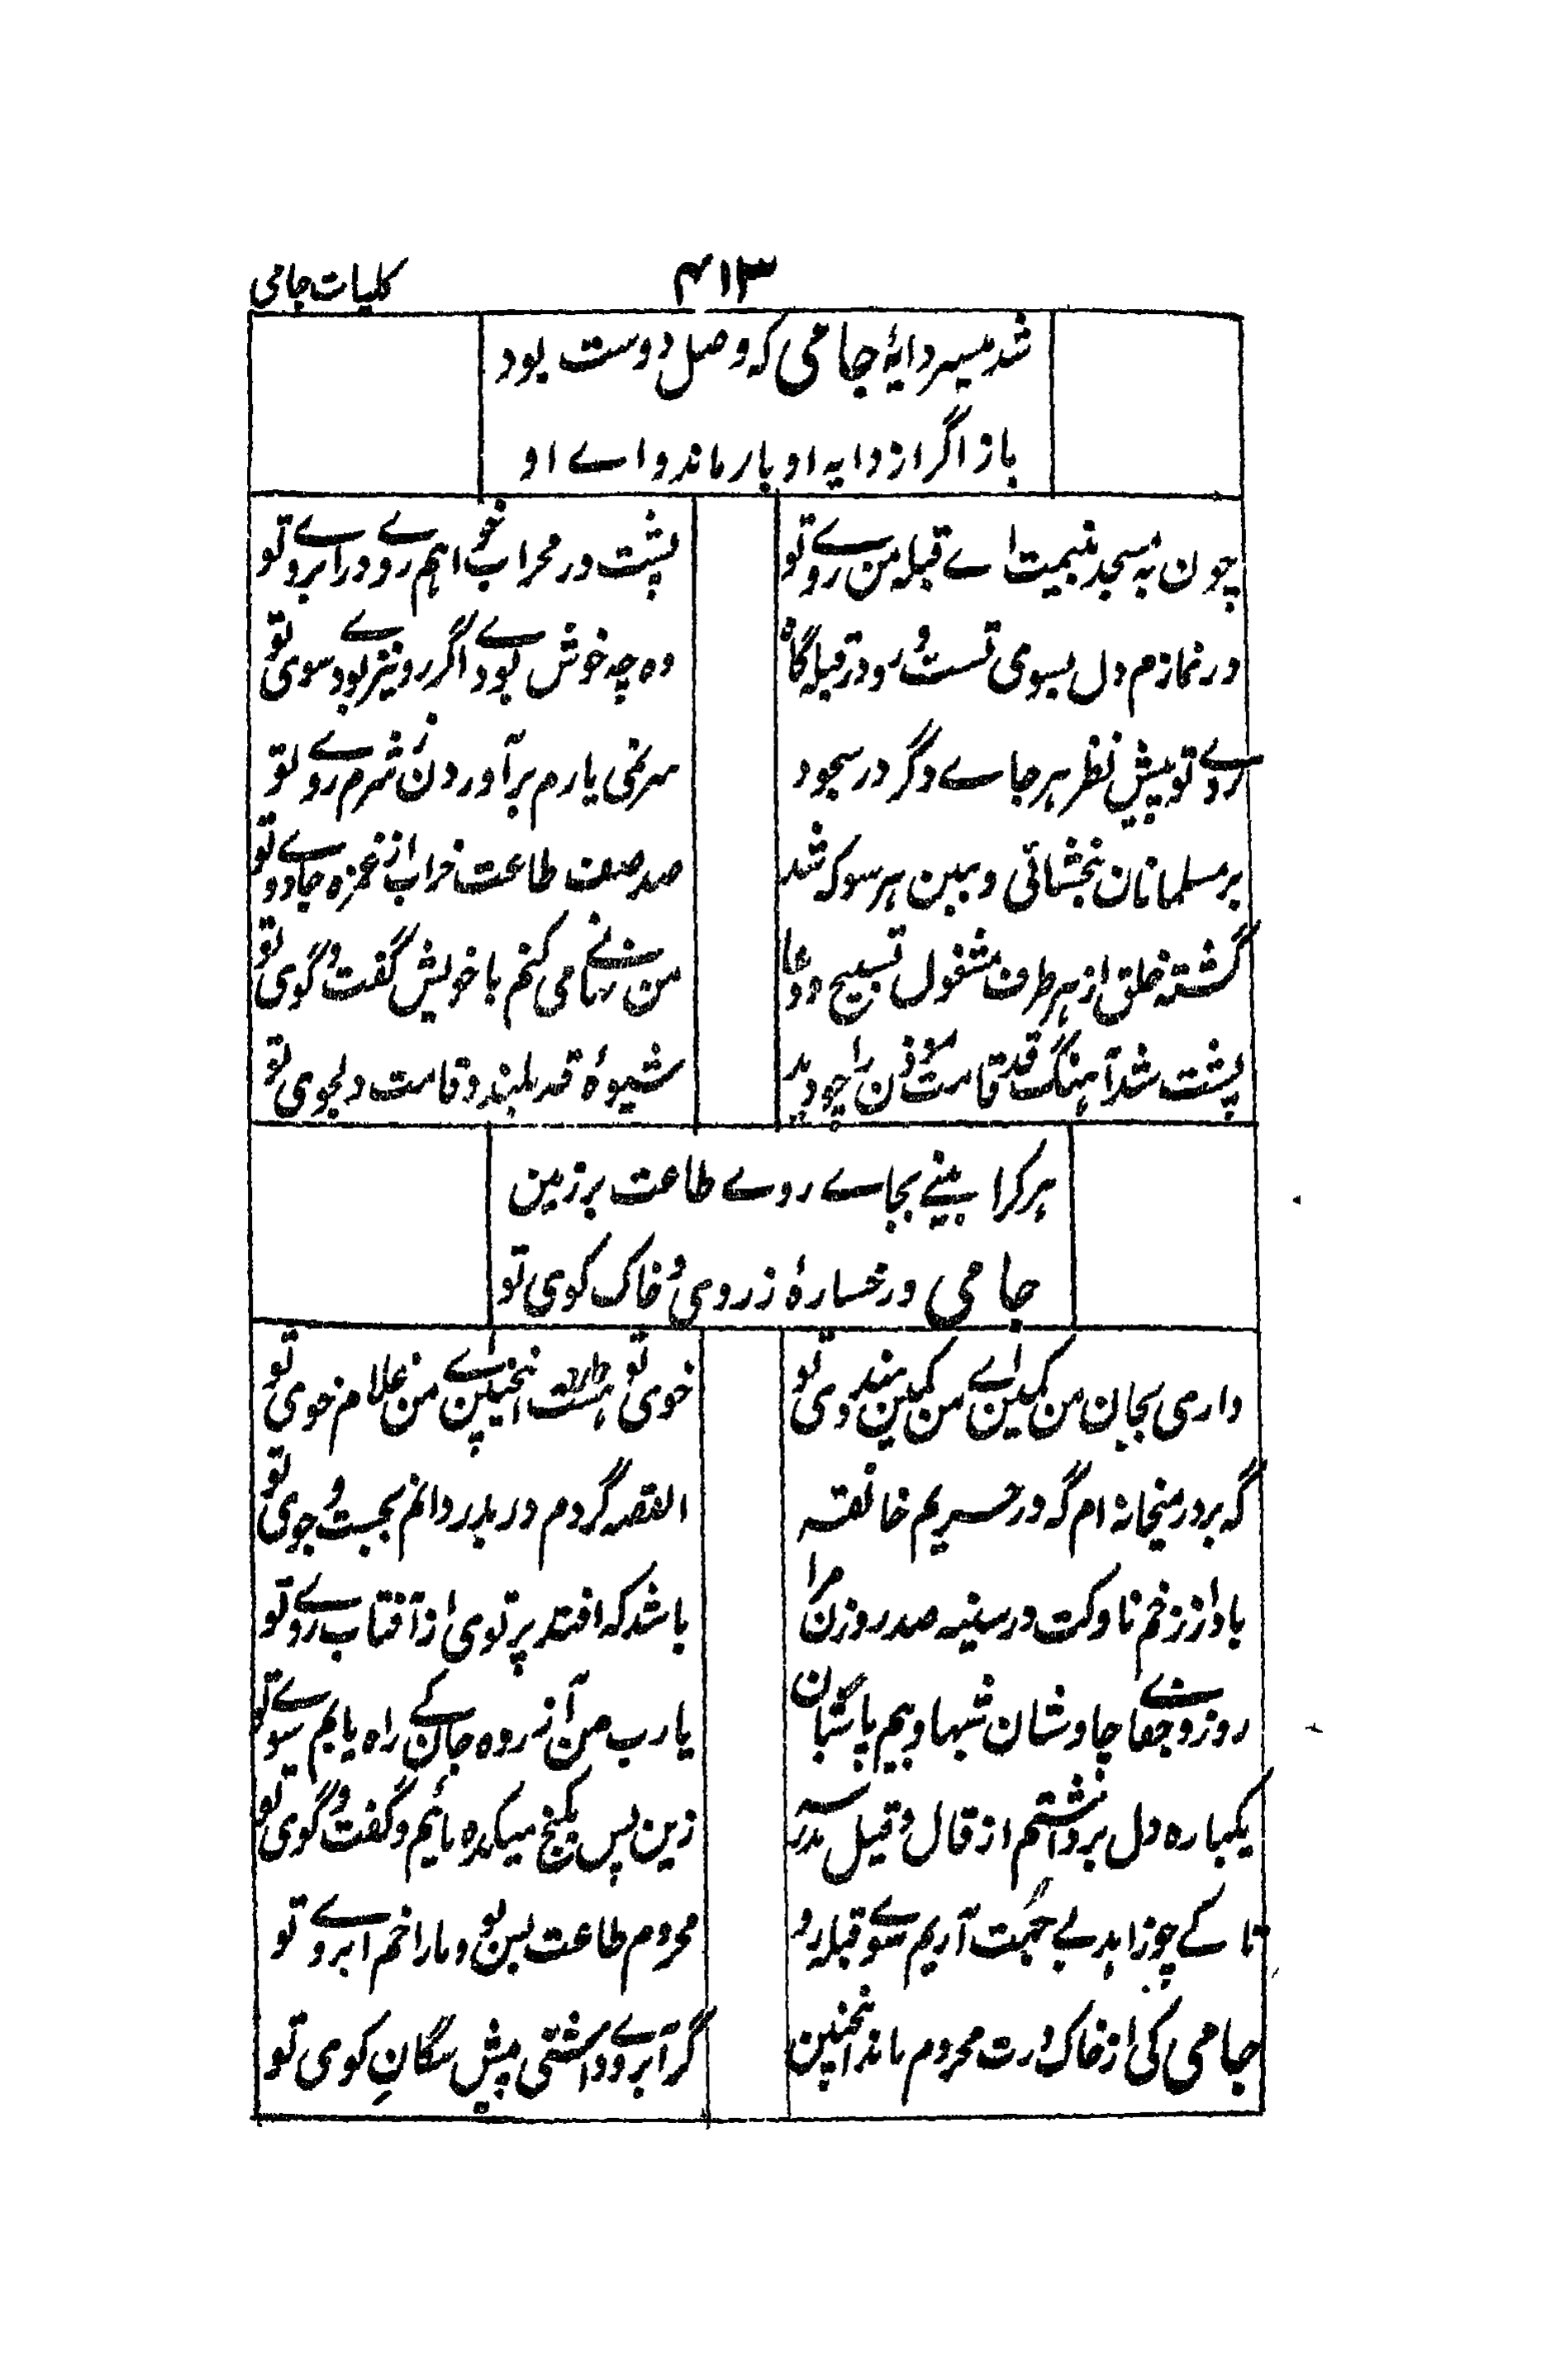 ۴۱۳ کلیات جامی
شد میسر دایهٔ جامی که وصل دوست بود
باز اگر از دایه او باز ماند وای او
چون به مسجد بینمت اے قبله من روے تو
پشت در محراب خواهم روے در ابروے تو
در نمازم دل بسوی تست و رو در قبله گاه
وه چه خوش بودے اگر روے نیز بودے سوی تو
روے تو پیش نظر هر جاے دگر در سجود
سر نمی یارم برآوردن ز شرم روے تو
بر مسلمانان نبخشائی و بین هر سو که شد
صد صف طاعت خراب از غمزه جادوے تو
گشته خلق از هر طرف مشغول تسبیح و دعا
من نهانے می کنم با خویش گفت و گوی تو
پشت شد آهنگ قد قامت مؤذن را چو دید
شیوهٔ قد بلند و قامت دلجوی تو
هر کرا بینے بجاے روے طاعت بر زمین
جامی و رخسارهٔ زرد و خاک کوی تو
داری بجان من کمین اے من کمین هندوی تو
خوی تو هست اینچنین اے من غلام خوی تو
گه بر در میخانه ام گه در حریم خانقه
القصه گردم در بدر دائم بجست و جوی تو
باد از زخم ناوکت در سینه صد روزن مرا
باشد که افتد پرتوی از آفتاب روے تو
روز و جفاے چاوشان شبها و بیم پاسبان
یارب من آزرده جان کے راه یابم سوے تو
یکباره دل برداشتم از قال و قیل مدرسه
زین پس بکنج میکده مائیم و گفت و گوی تو
تا کے چو زاهد بے جهت آریم سوے قبله رو
محروم طاعت بین تو و ما را خم ابروے تو
جامی کی از خاک درت محروم ماند اینچنین
گر آبروے داشتی پیش سگانِ کوی تو